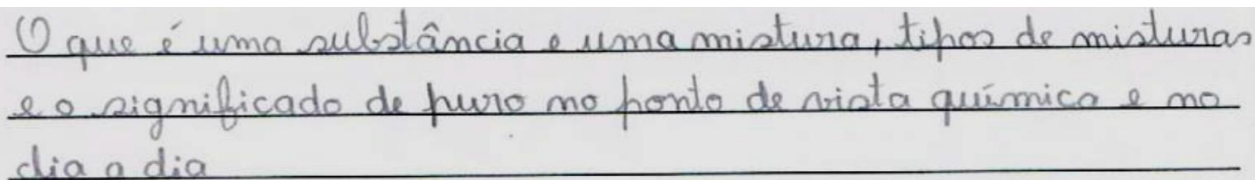 O que é uma substância e uma mistura, tipos de misturas
e o significado de puro no ponto de vista químico e no
dia a dia